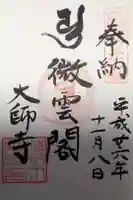 奉納
平成廿六年
十一月八日
微雲閣
大師寺